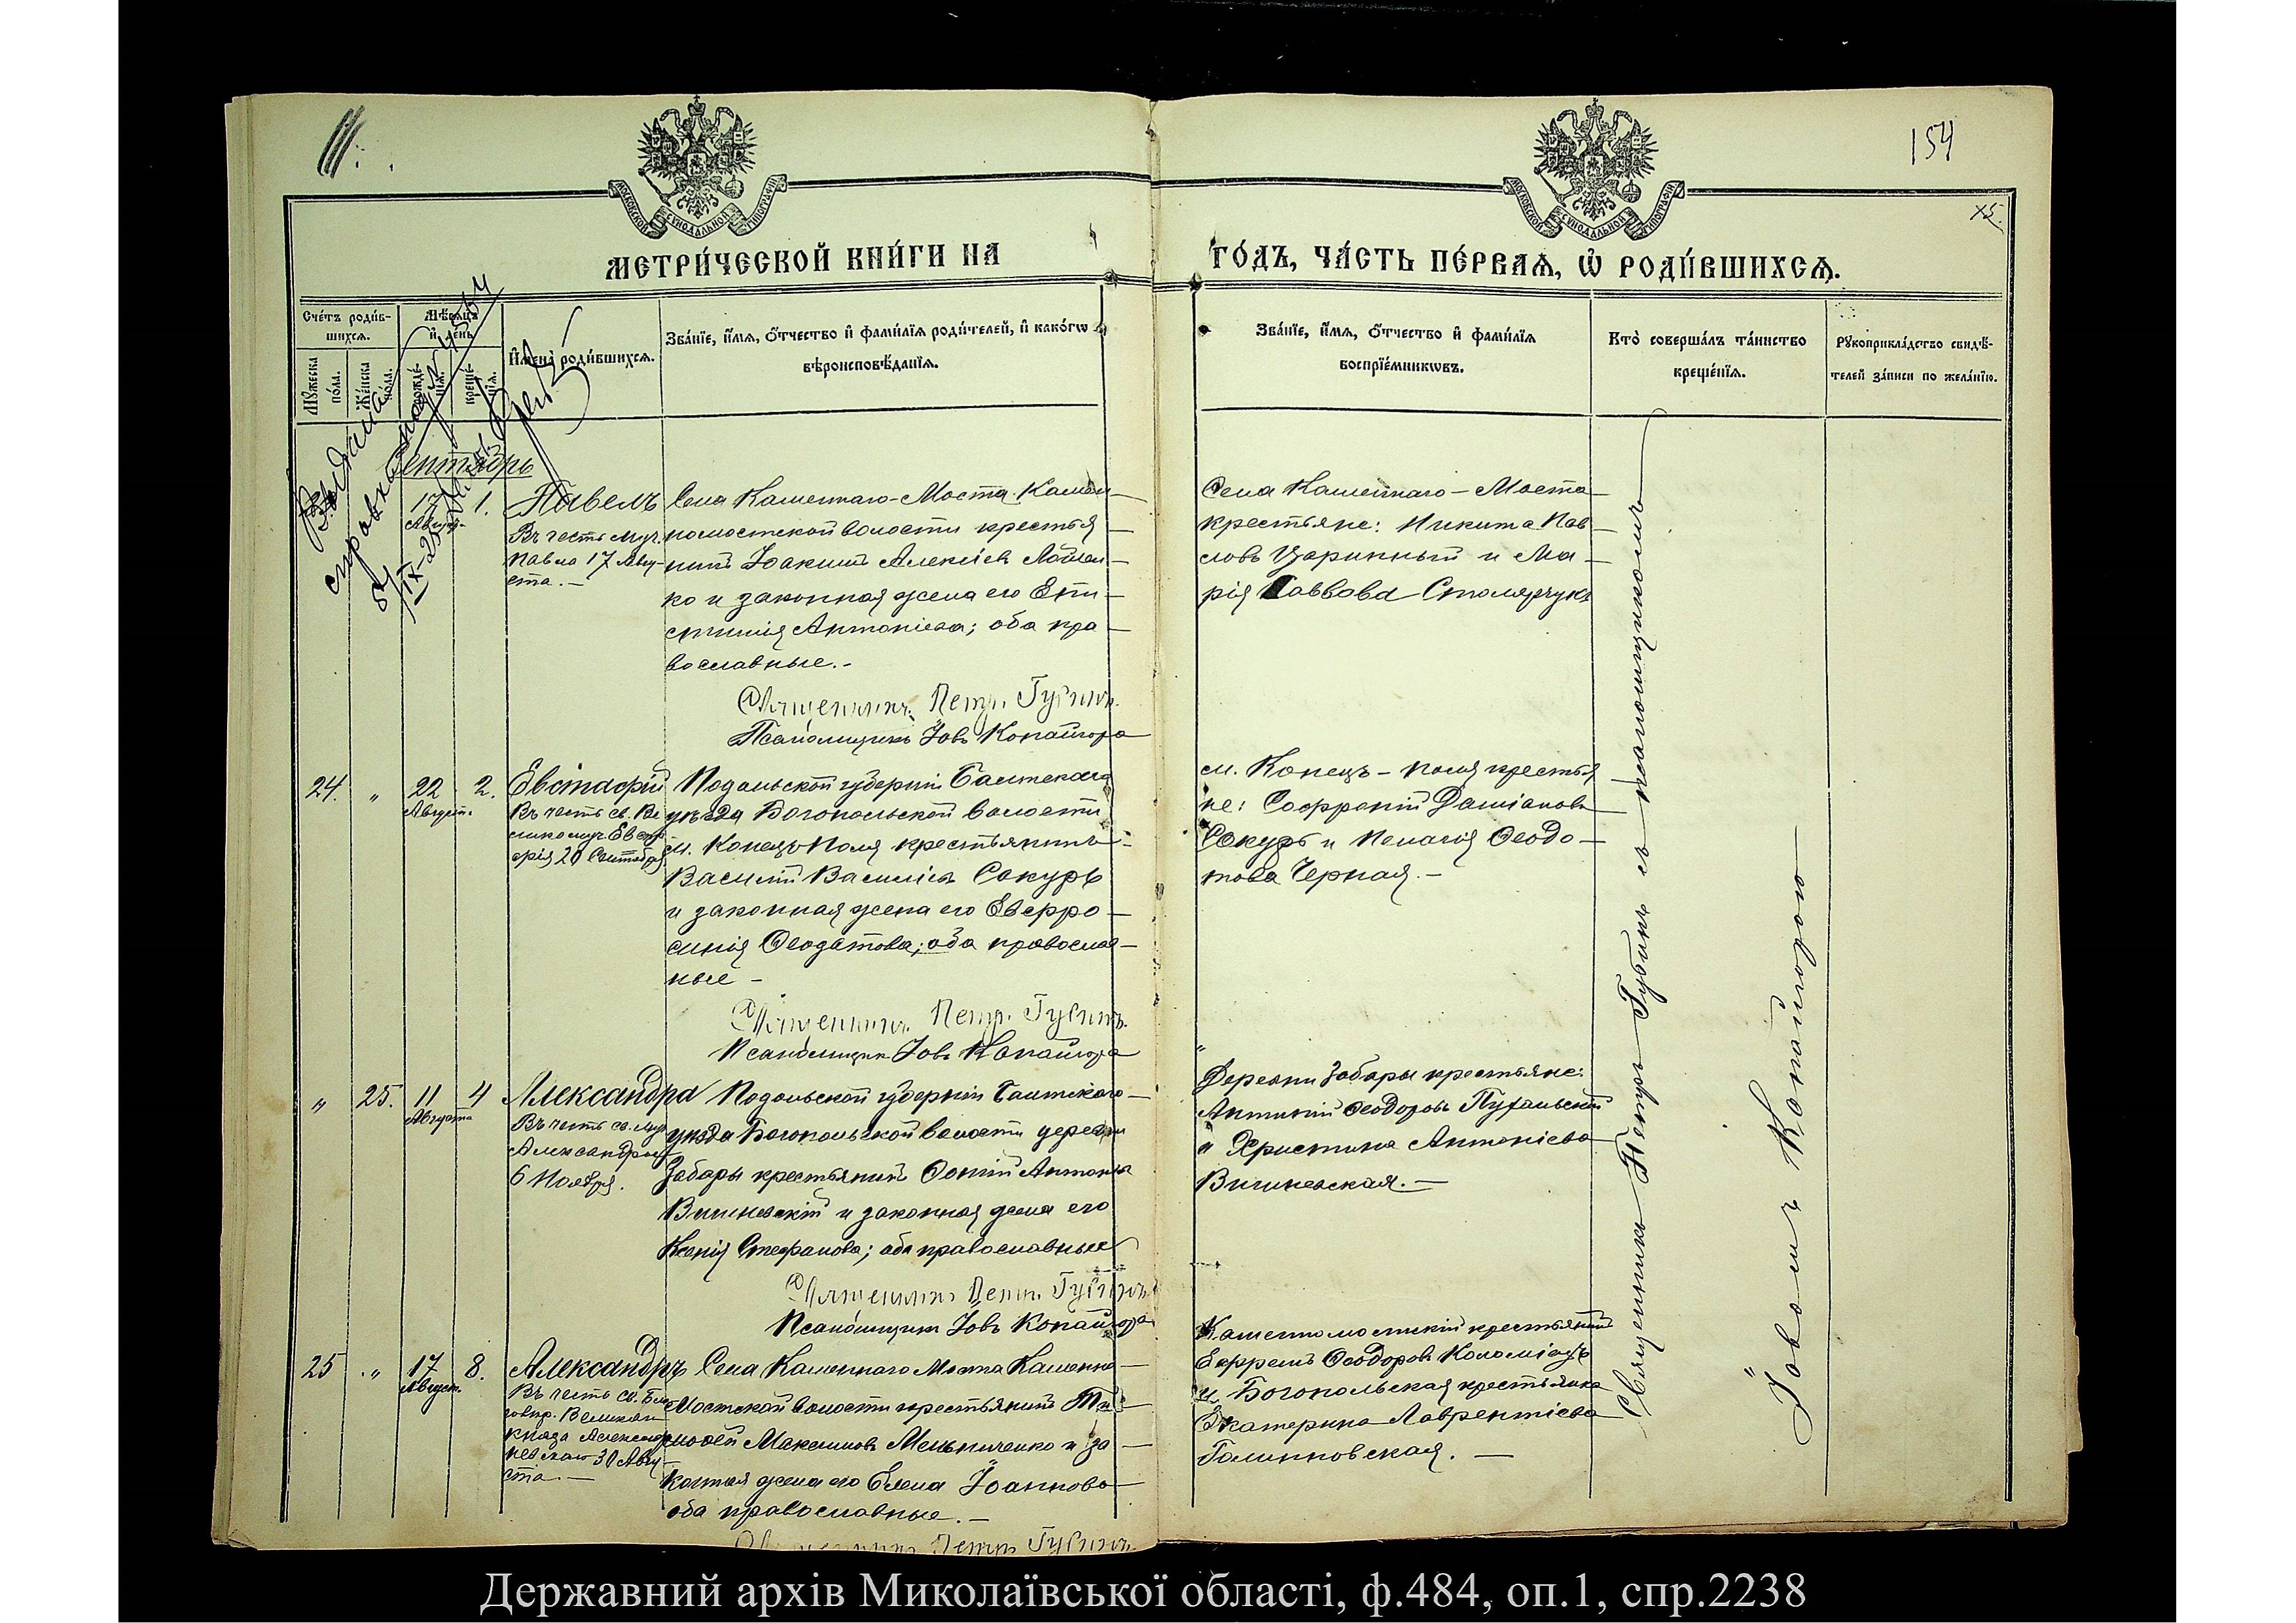 154
МОСКОВСКОЙ СУНОДАЛЬНОЙ ТИПОГРАФІИ
МОСКОВСКОЙ СУНОДАЛЬНОЙ ТИПОГРАФІИ
МЕТРИ́ЧЕСКОЙ КНИ́ГИ НА
ГО́ДЪ, ЧА́СТЬ ПЕ́РВАѦ, Ѽ РОДИ́ВШИХСѦ.
Сче́тъ роди́в-
шихсѧ.
Мѣ́сѧцъ
и҆ де́нь
Мꙋ́жеска
по́ла.
Же́нска
по́ла.
рожде́-
нїѧ.
креще́-
нїѧ.
И҆мена̀ роди́вшихсѧ.
Зва́нїе, и҆́мѧ, ѻ҆́тчество и҆ фами́лїѧ роди́телей, и҆ како́гѡ
вѣроисповѣ́данїѧ.
Зва́нїе, и҆́мѧ, ѻ҆́тчество и҆ фами́лїѧ
воспрїе́мникѡвъ.
Кто̀ соверша́лъ та́инство
креще́нїѧ.
Рꙋкоприкла́дство свидѣ́-
телей за́писи по жела́нїю.
Сентябрь
17 1.
Август.
Павелъ
Въ честь муч.
Павла 17 Авгу-
ста.-
Села Каменнаго-Моста Камен-
номостской волости крестья-
нинъ Іоакимъ Алексіевъ
ко и законная жена его
Антоніева; оба пра-
вославные.-
Священникъ Петръ Губинъ
Псаломщикъ Іовъ Копайгора
Села Каменнаго-Моста
крестьяне: Никита Пав-
ловъ Царинный и Ма-
рія Саввова Столярчукъ
24. " 22 2.
Август.
Евстафій
Въ честь св. Ве
ликомуч. Евста
фія 20 Сентября
Подольской губерніи Балтскаго
уѣзда Богопольской волости
м. Конецъ-Поля крестьянинъ
Василій Василіевъ Сокуръ
и законная жена его Евфро-
синія Ѳеодотова; оба православ-
ные -
Священникъ Петръ Губинъ
Псаломщикъ Іовъ Копайгора
м. Конецъ-поля крестья
не: Софроній Даміановъ
Сокуръ и Пелагія Ѳеодо-
това Черная.-
" 25. 11 4
Августа
Александра
Въ честь св. муч
Александры
6 Ноября.
Подольской губерніи Балтскаго
уѣзда Богопольской волости деревни
Забары крестьянинъ Антоніевъ
Вишневскій и законная жена его
Ксенія Стефанова; оба православные
Священникъ Петръ Губинъ
Псаломщикъ Іовъ Копайгора
Деревни Забары крестьяне:
Ѳеодоровъ
и Христина Антоніева
Вишневская.-
25 " 17 8.
Август.
Александръ
Въ честь св. Бла
говѣр. Великаго
князя Александра
невскаго 30 Авгу-
ста.-
Села Каменнаго Моста Каменно-
Мостской волости крестьянинъ Ти-
моѳей Максимовъ Мельниченко и за-
конная жена его Елена Іоаннова
оба православные.-
Священникъ Петръ Губинъ
Каменномостскій крестьянинъ
Ефремъ Ѳеодоровъ Коломіецъ
и Богопольская крестьянка
Екатерина Лаврентіева
Галинковская.-
Священникъ Петръ Губинъ съ псаломщикомъ
Іовомъ Копайгорою
Державний архів Миколаївської області, ф.484, оп.1, спр.2238